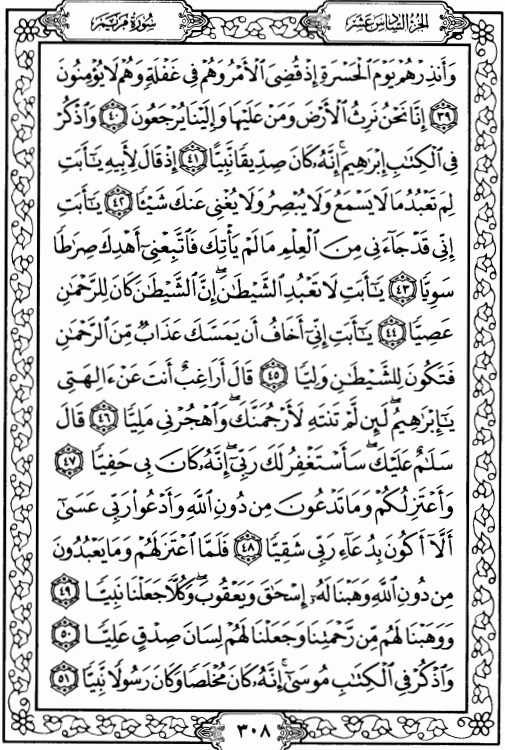 سُورَةُ مَرْيَمَ الجُزْءُ السَّادِسَ عَشَرَ
وَأَنذِرْهُمْ يَوْمَ ٱلْحَسْرَةِ إِذْ قُضِىَ ٱلْأَمْرُ وَهُمْ فِى غَفْلَةٍ وَهُمْ لَا يُؤْمِنُونَ
٣٩ إِنَّا نَحْنُ نَرِثُ ٱلْأَرْضَ وَمَنْ عَلَيْهَا وَإِلَيْنَا يُرْجَعُونَ ٤٠ وَٱذْكُرْ
فِى ٱلْكِتَٰبِ إِبْرَٰهِيمَ ۚ إِنَّهُۥ كَانَ صِدِّيقًا نَّبِيًّا ٤١ إِذْ قَالَ لِأَبِيهِ يَٰٓأَبَتِ
لِمَ تَعْبُدُ مَا لَا يَسْمَعُ وَلَا يُبْصِرُ وَلَا يُغْنِى عَنكَ شَيْـًٔا ٤٢ يَٰٓأَبَتِ
إِنِّى قَدْ جَآءَنِى مِنَ ٱلْعِلْمِ مَا لَمْ يَأْتِكَ فَٱتَّبِعْنِىٓ أَهْدِكَ صِرَٰطًا
سَوِيًّا ٤٣ يَٰٓأَبَتِ لَا تَعْبُدِ ٱلشَّيْطَٰنَ ۖ إِنَّ ٱلشَّيْطَٰنَ كَانَ لِلرَّحْمَٰنِ
عَصِيًّا ٤٤ يَٰٓأَبَتِ إِنِّىٓ أَخَافُ أَن يَمَسَّكَ عَذَابٌ مِّنَ ٱلرَّحْمَٰنِ
فَتَكُونَ لِلشَّيْطَٰنِ وَلِيًّا ٤٥ قَالَ أَرَاغِبٌ أَنتَ عَنْ ءَالِهَتِى
يَٰٓإِبْرَٰهِيمُ ۖ لَئِن لَّمْ تَنتَهِ لَأَرْجُمَنَّكَ ۖ وَٱهْجُرْنِى مَلِيًّا ٤٦ قَالَ
سَلَٰمٌ عَلَيْكَ ۖ سَأَسْتَغْفِرُ لَكَ رَبِّىٓ ۖ إِنَّهُۥ كَانَ بِى حَفِيًّا ٤٧
وَأَعْتَزِلُكُمْ وَمَا تَدْعُونَ مِن دُونِ ٱللَّهِ وَأَدْعُوا۟ رَبِّى عَسَىٰٓ
أَلَّآ أَكُونَ بِدُعَآءِ رَبِّى شَقِيًّا ٤٨ فَلَمَّا ٱعْتَزَلَهُمْ وَمَا يَعْبُدُونَ
مِن دُونِ ٱللَّهِ وَهَبْنَا لَهُۥٓ إِسْحَٰقَ وَيَعْقُوبَ ۖ وَكُلًّا جَعَلْنَا نَبِيًّا ٤٩
وَوَهَبْنَا لَهُم مِّن رَّحْمَتِنَا وَجَعَلْنَا لَهُمْ لِسَانَ صِدْقٍ عَلِيًّا ٥٠
وَٱذْكُرْ فِى ٱلْكِتَٰبِ مُوسَىٰٓ ۚ إِنَّهُۥ كَانَ مُخْلَصًا وَكَانَ رَسُولًا نَّبِيًّا ٥١
٣٠٨